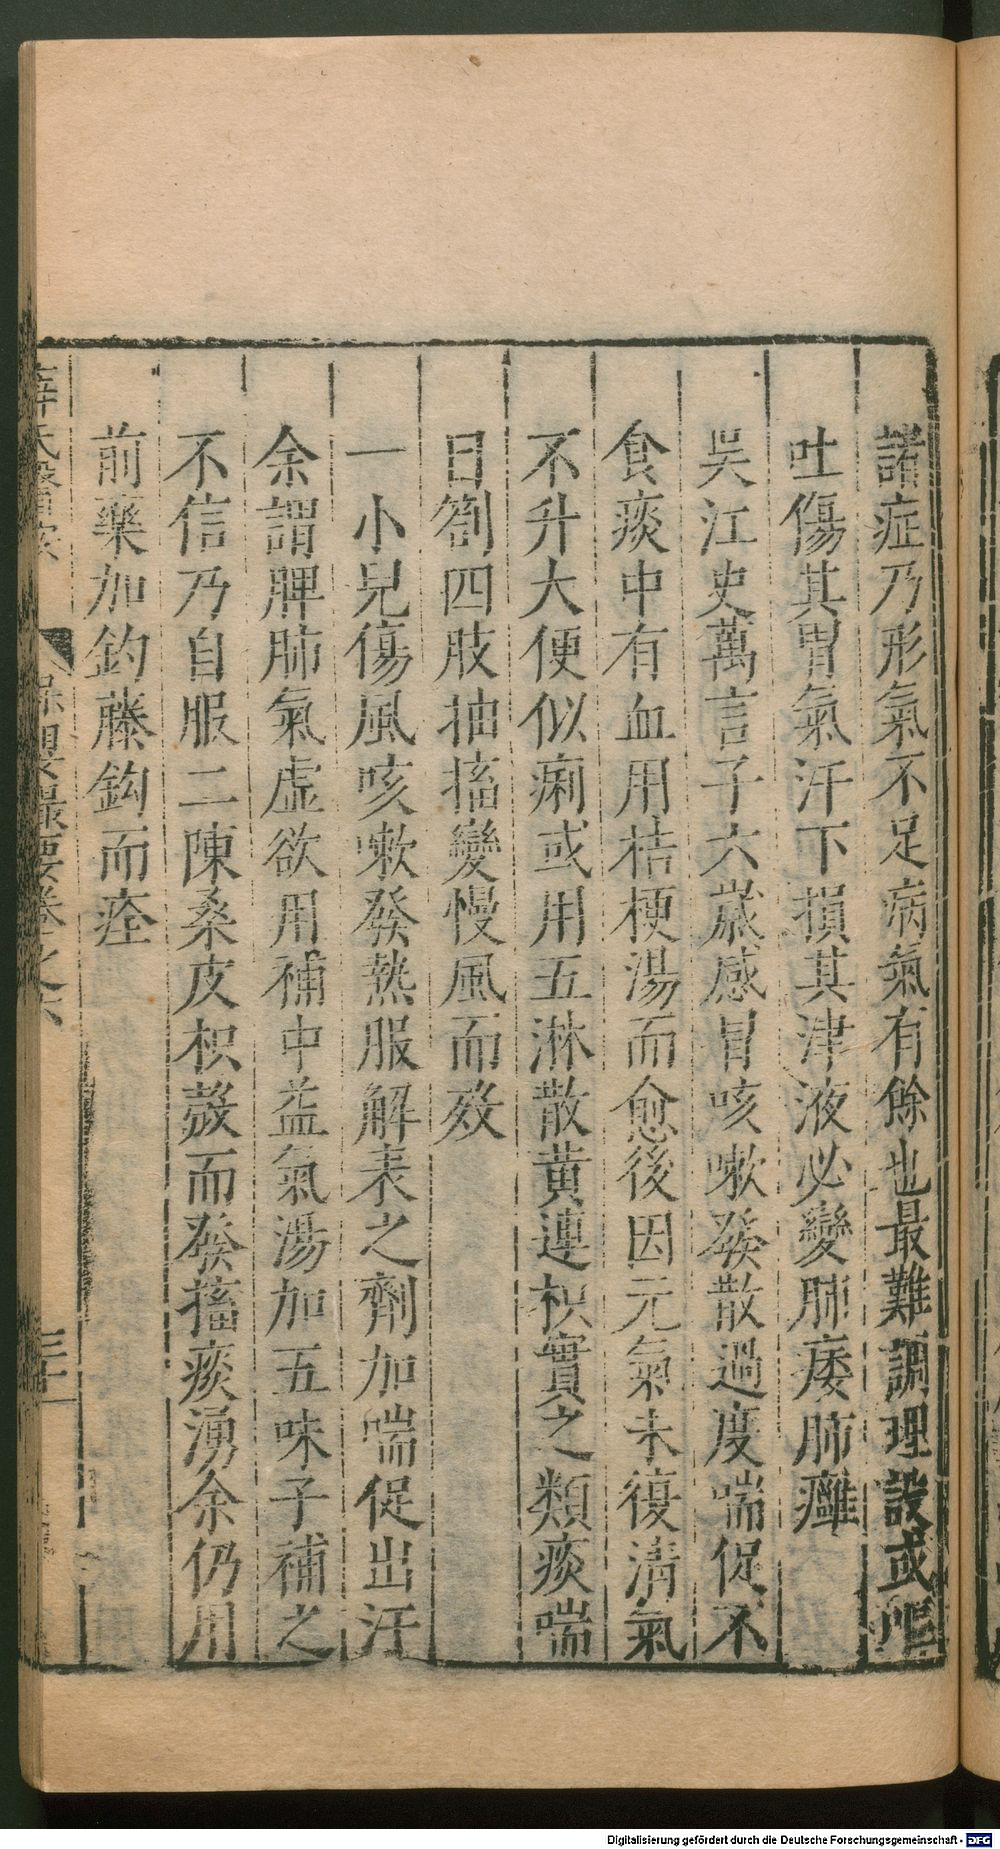 諸症乃形氣不足病氣有餘也最難調理設或嘔
吐傷其胃氣汗下損其津液必變肺痿肺癰
吳江史萬言子六歲感冒咳嗽發散過度喘促不
食痰中有血用桔梗湯而愈後因元氣未復清氣
不升大便似痢或用五淋散黄連枳實之類痰喘
日劄四肢抽搐變慢風而歿
一小兒傷風咳嗽發熱服解表之劑加喘促出汗
余謂脾肺氣虛欲用補中益氣湯加五味子補之
不信乃自服二陳桑皮枳殼而發搐痰湧余仍用
前藥加釣藤鈎而痊
薛氏醫案 保嬰撮要卷之六 三十
Digitalisierung gefördert durch die Deutsche Forschungsgemeinschaft - DFG